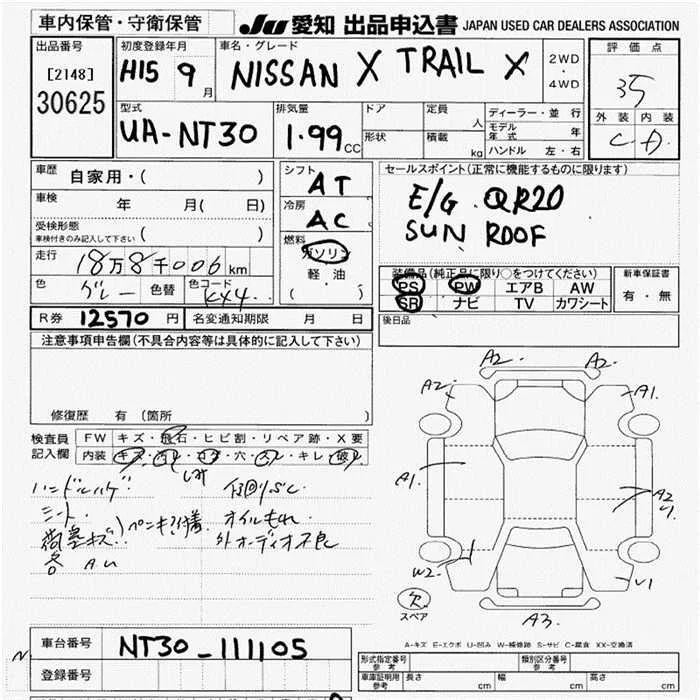 車内保管・守衛保管
JU 愛知 出品申込書 JAPAN USED CAR DEALERS ASSOCIATION
出品番号
[2148]
30625
初度登録年月
H15 9月
車名・グレード
NISSAN X TRAIL X
2WD
・
4WD
評価点
35
外装 内装
C D
型式
UA-NT30
排気量
1.99 CC
ドア
形状
定員 人
積載 kg
ディーラー・並行
モデル年式 年
ハンドル 左・右
車歴 自家用・( )
車検 年 月( 日)
受検形態
車検付きのみ記入して下さい ( )
走行 18万8千006km
色 グレー 色替 色コード KX4
シフト
AT
冷房
AC
燃料
ガソリン
軽油
( )
セールスポイント(正常に機能するものに限ります)
E/G QR20
SUN ROOF
装備品(純正品に限り○をつけてください)
PS PW エアB AW
SR ナビ TV カワシート
新車保証書
有・無
R券 12570円 名変通知期限 月 日
後日品
注意事項申告欄(不具合内容等は具体的に記入して下さい)
修復歴 有(箇所 )
検査員
記入欄
FW キズ・飛石・ヒビ割・リペア跡・X要
内装 キズ・汚レ・コゲ・穴・スレ・キレ・破レ
シミ
ハンドルハゲ
シート
オイルモレ
外オーディオ不良
各 AU
A2 A2
A2 A1
A1 A2
W2 U1
A3
欠
スペア
A-キズ E-エクボ U-凹み W-補修跡 S-サビ C-腐食 XX-交換済
車台番号 NT30-111105
登録番号
型式指定番号
参考
類別区分番号
参考
車庫証明用
参考
長さ cm 幅 cm 高さ cm